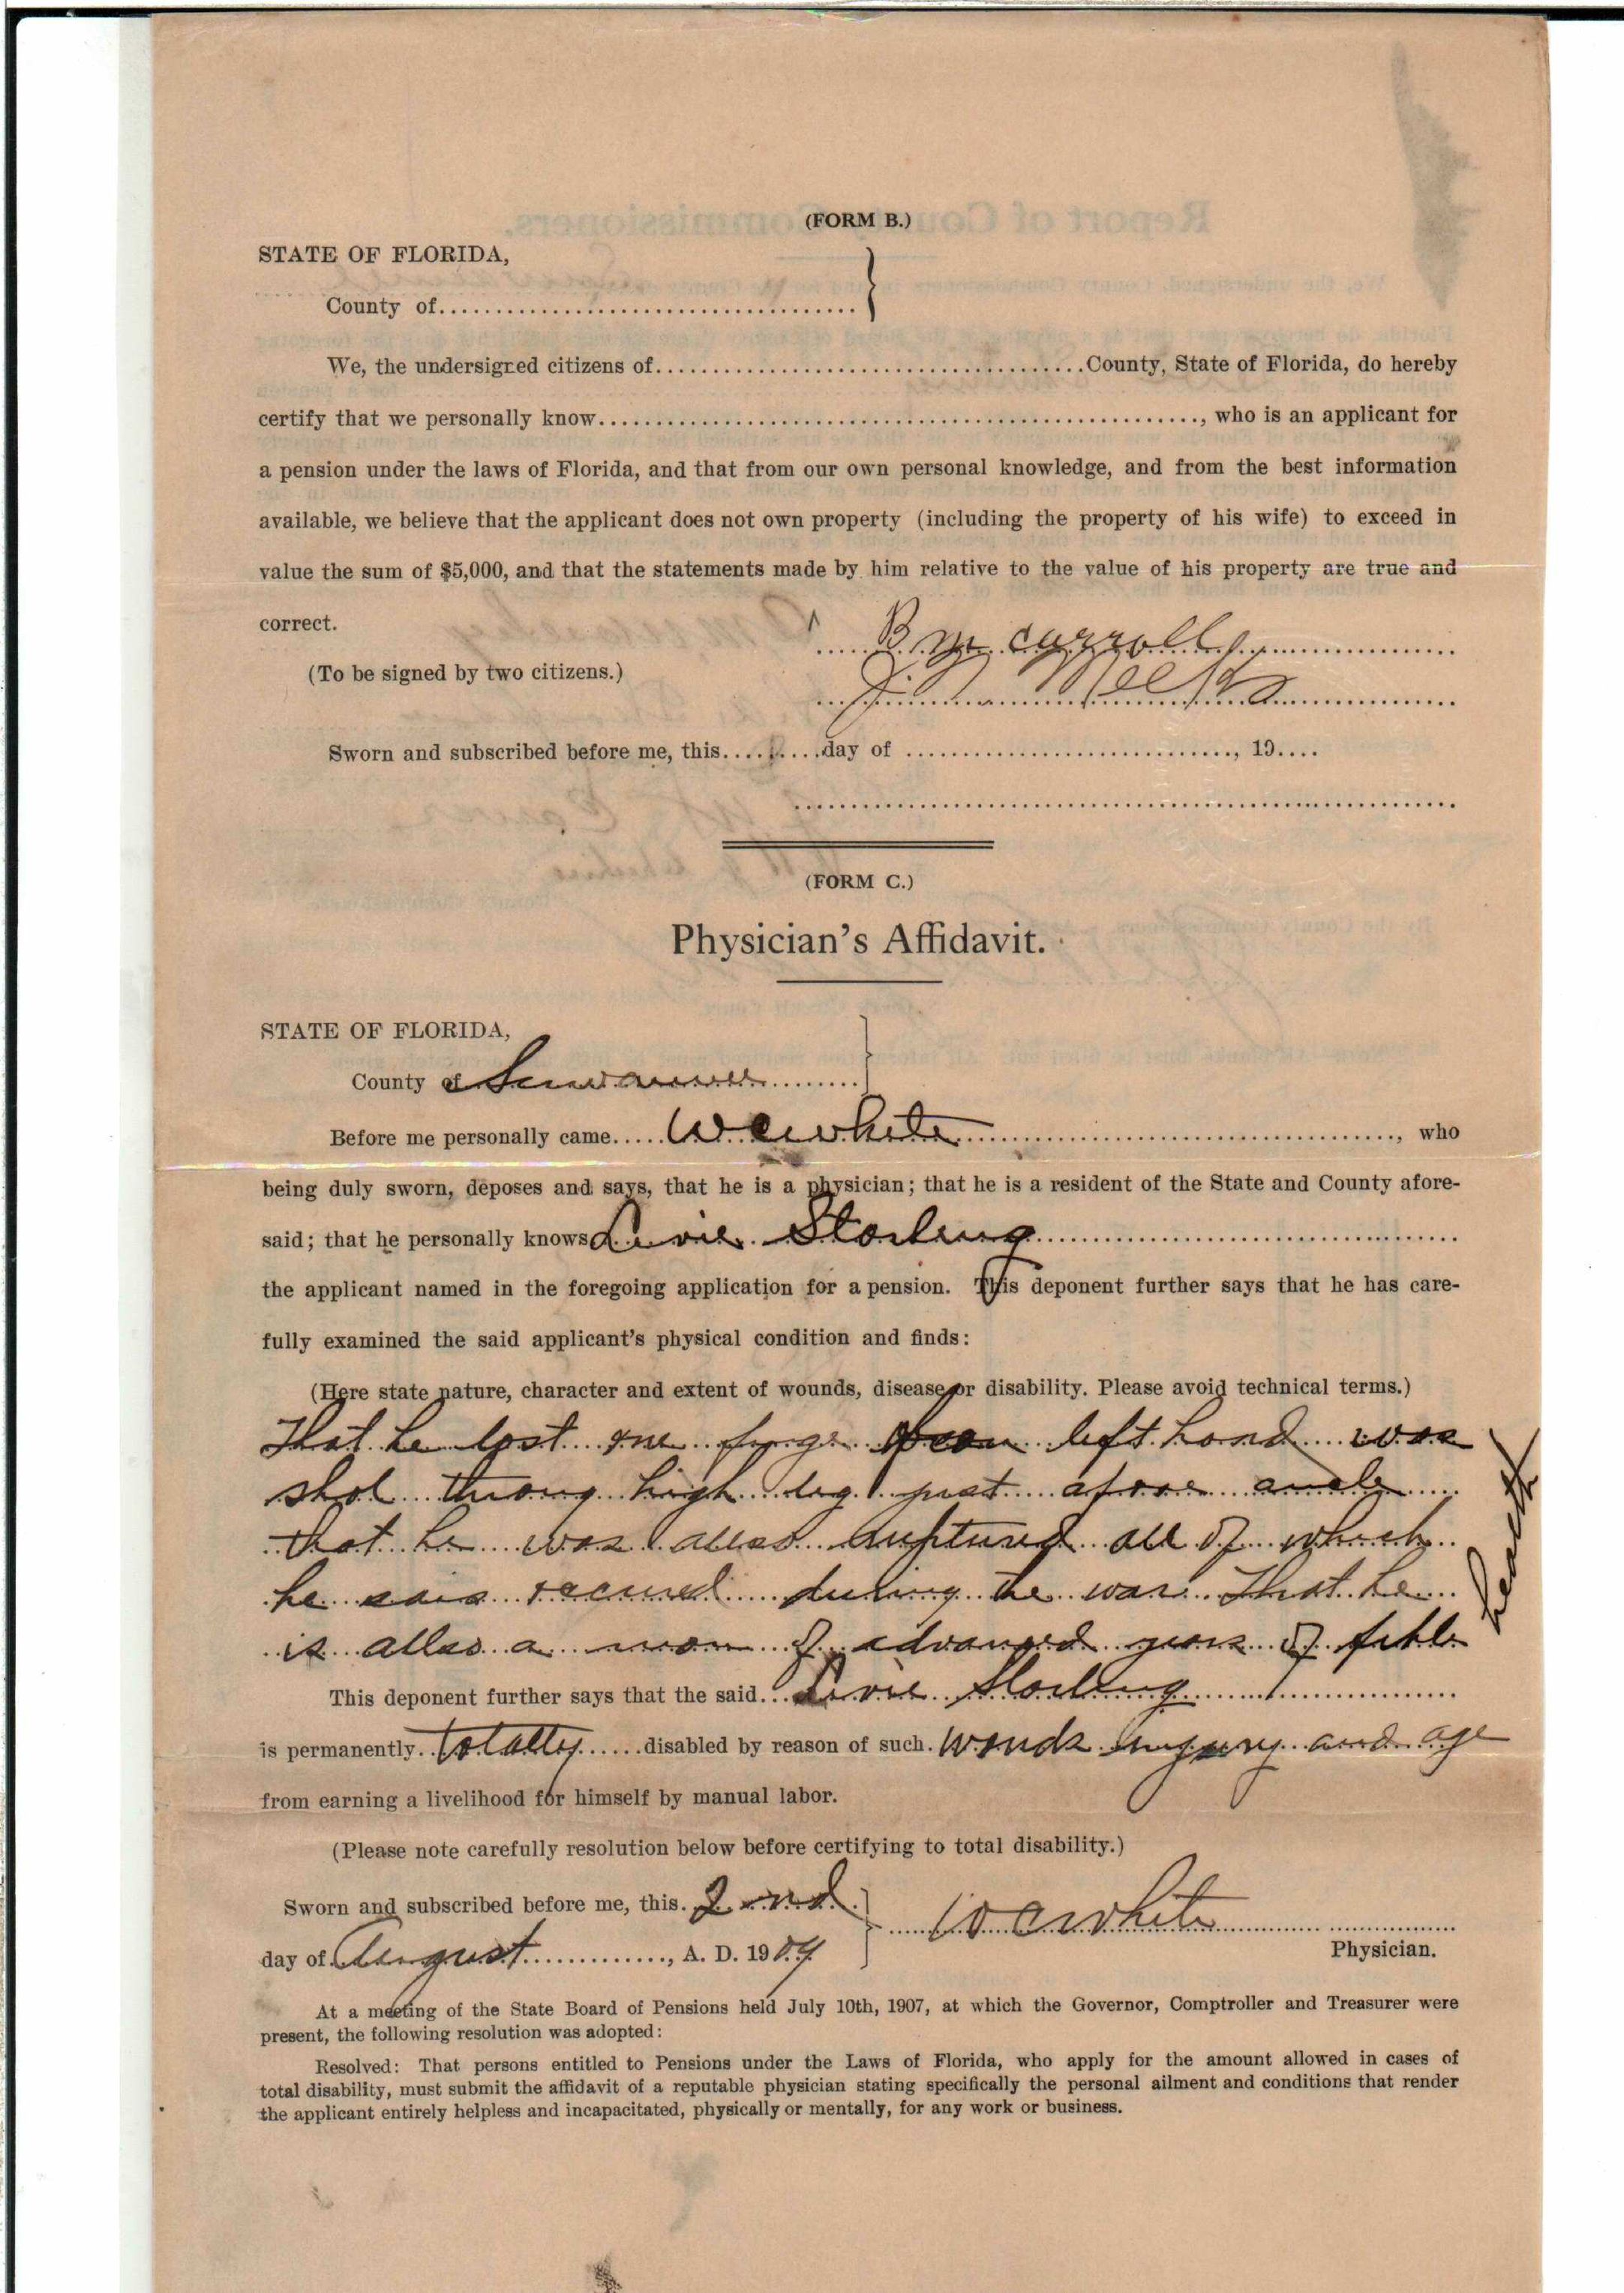 (FORM B.)
STATE OF FLORIDA,
County of
We, the undersigned citizens of County, State of Florida, do hereby
certify that we personally know, who is an applicant for
a pension under the laws of Florida, and that from our own personal knowledge, and from the best information
available, we believe that the applicant does not own property (including the property of his wife) to exceed in
value the sum of $5,000, and that the statements made by him relative to the value of his property are true and
correct.
B m carroll
(To be signed by two citizens.)
Sworn and subscribed before me, this day of , 19
(FORM C.)
Physician's Affidavit.
STATE OF FLORIDA,
County of Suwannee
Before me personally came W C White, who
being duly sworn, deposes and says, that he is a physician; that he is a resident of the State and County afore-
said; that he personally knows Livie Starling
the applicant named in the foregoing application for a pension. This deponent further says that he has care-
fully examined the said applicant's physical condition and finds:
(Here state nature, character and extent of wounds, disease or disability. Please avoid technical terms.)
That he lost one finger left hand was
shot throug leg just above
that he was allso ruptured all of which
he during the war That he
is allso a man of advanced years of feble
health
This deponent further says that the said Livie Starling
is permanently totally disabled by reason of such wonds injury and age
from earning a livelihood for himself by manual labor.
(Please note carefully resolution below before certifying to total disability.)
Sworn and subscribed before me, this 2nd
W C White
day of August, A. D. 1909
Physician.
At a meeting of the State Board of Pensions held July 10th, 1907, at which the Governor, Comptroller and Treasurer were
present, the following resolution was adopted:
Resolved: That persons entitled to Pensions under the Laws of Florida, who apply for the amount allowed in cases of
total disability, must submit the affidavit of a reputable physician stating specifically the personal ailment and conditions that render
the applicant entirely helpless and incapacitated, physically or mentally, for any work or business.